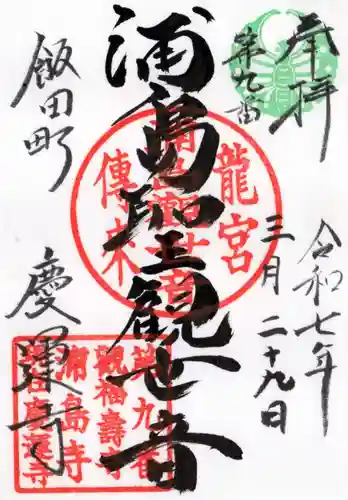 奉拝
第九番
令和七年
三月二十九日
浦島聖観世音
龍宮
傳来
飯田町
慶運寺
第九番
観福壽寺
浦島寺
慶運寺